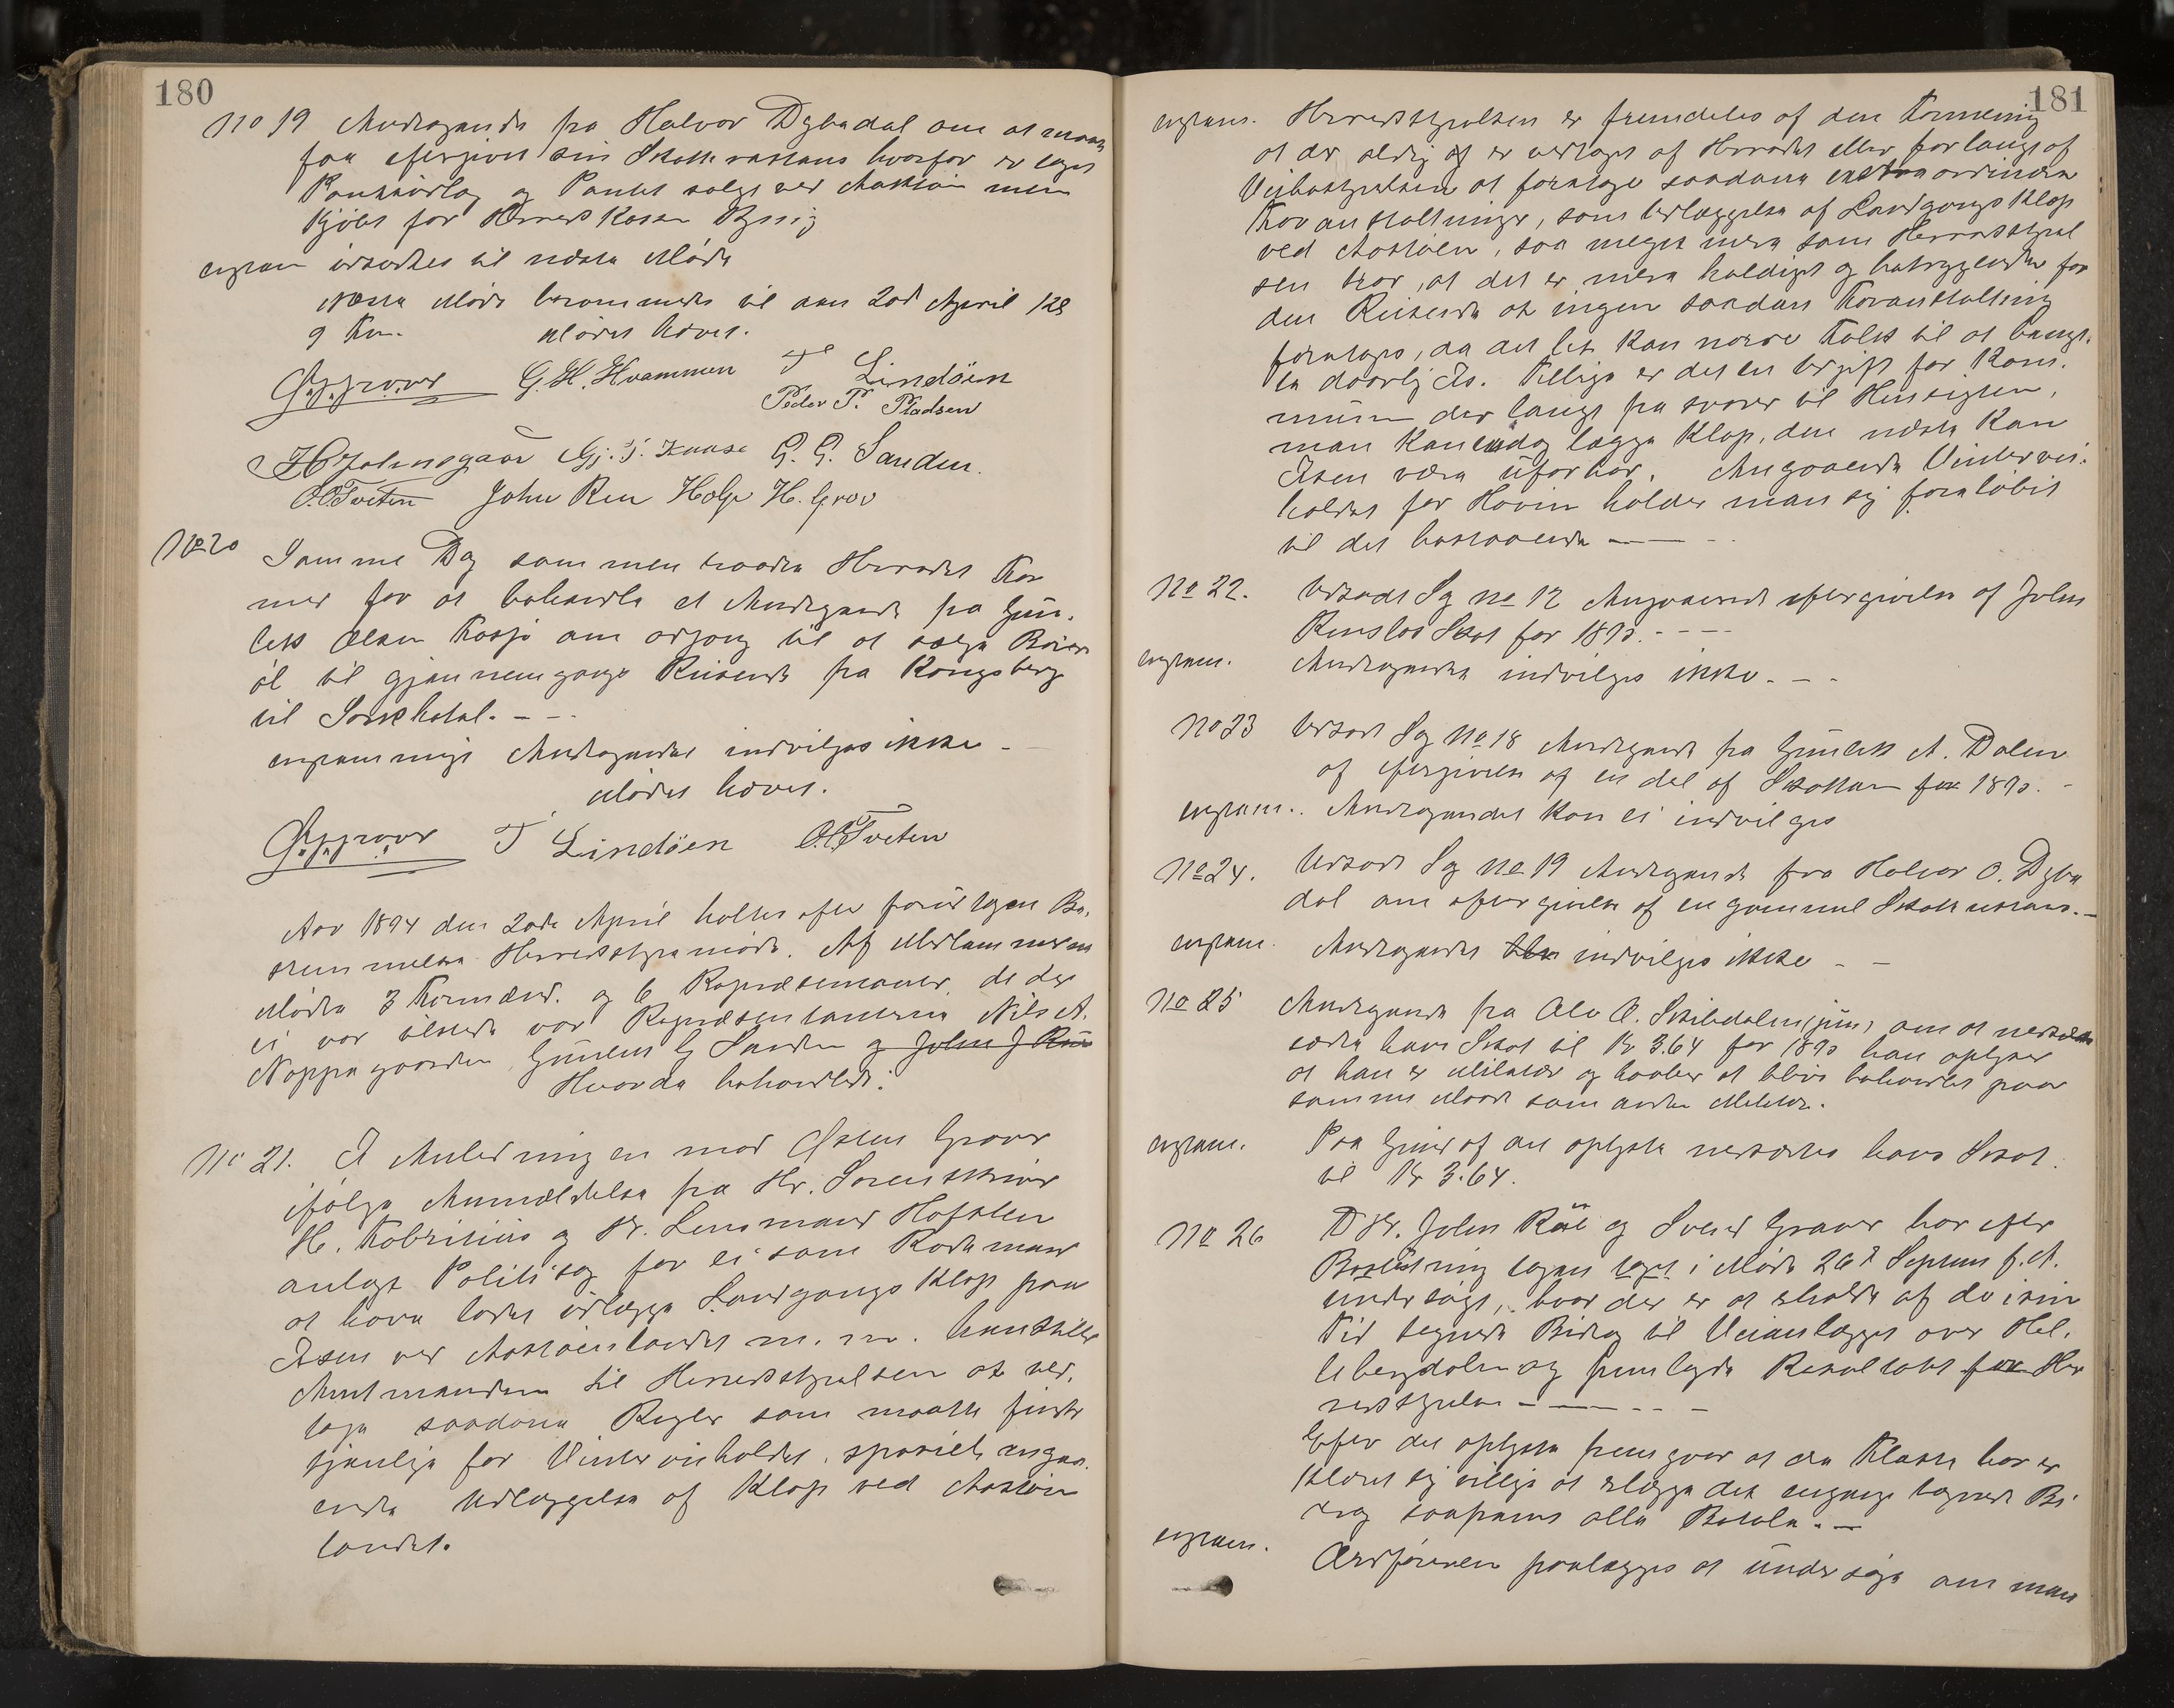 180
No 19 Andragende fra Halvor Dybedal om at maatte
faa eftergivet sin Skatterestans hvorfor er taget
Panteudlæg og Pantet solgt ved Auktion men
kjøbt for Herredskassens Regning
enstem udsættes til næste Møde
Næste Møde berammedes til den 20de April kl
9 Fm. Mødet hævet.
G. H. Hvammen T Lindöen
Peder P. Pladsen
H Holmsgaar Gj. T. Kaase G. G. Sanden.
O.O. Tveten John Ruu Helge H. Grov
No 20 Samme Dag sammentraadte Herredets For
mænd for at behandle et Andragende fra Gun-
leik Olsen Fosjø om adgang til at sælge Baier
øl til gjennemgangs Reisende fra Kongsberg
til Fosshotel. - - -
enstemmigt Andragendet indvilges ikke -
Mødet hævet.
T Lindöen O.O. Tveten
Aar 1894 den 20de April holtes efter forud tagen Be-
stemmelse Herredsstyremøde. Af Medlemmerne
Mødte 3 Formænd og 6 Repræsentanter, de der
ei var tilstede var Repræsentanterne Nils A.
Noppegaarden Gunleik G Sanden og John J Ruu
Hvorda behandledes:
No 21. I Anledningen mod Østen Graver
ifølge Anmældelse fra Hr. Sorenskriver
H. Fabritius og Hr. Lensmand Hofsten
anlagt Politisag for ei som Rodemand
at have ladet udlægge Landgangs Klop paa
Isen ved Austøenlandet m. m. henstiller
Amtmanden til Herredsstyrelsen at ved-
tage saadanne Regler som maatte findes
tjenlige for Vinterveiholdet, specielt angaa-
ende Udlæggelse af Klop ved Austøen
landet.
181
enstem. Herredsstyrelsen er fremdeles af den Formening
at der aldrig af er vedtaget af Herredet eller forlangt af
Veibestyrelsen at foretage saadanne extraordinære
Foranstaltninger, som udlæggelse af Landgangs Klop
ved Austøen, saa meget mere som Herredsstyrel
sen tror, at det er mere heldigst og betryggende for
den Reisende at ingen saadan Foranstaltning
foretages, da det let kan narre Folk til at benyt-
te daarlig Is. Tillige er det en Udgift for Kom-
munen der langt fra svarer til Hensigten,
man kan endag lægge Klop, den næste kan
Isen være ufarbar. Angaaende Vintervei-
holdet for Høven holder man sig foreløbig
til det bestaaende - - - -
No 22. Udsadt Sag No 17 Angaaende eftergivelse af John
Rueslos Skat for 1893. - - -
enstem. Andragendet indvilges ikke. - -
No 23 Udsadt Sag No 18 Andragende fra Gunleik A. Dalen
af eftergivelse af en del af Skatten for 1893. -
enstem. Andragendet kan ei indvilges
No 24. Udsadt Sag No 19 Andragende fra Halvor O. Dybe
dal om eftergivelse af en gammel Skatterestans. -
enstem. Andragendet indvilges ikke - -
No 25 Andragende fra Ole O. Skibdalen (jun) om at nedsætte
hans Skat til Kr 3.64 for 1893 han oplyser
at han er Militær og haaber at blive behandlet paa
samme Maade som andre Militære.
enstem. Paa Grund af det oplyste nedsættes hans Skat
til Kr 3.64.
No 26 D Hr. John Ruu og Svend Graver har efter
Beslutning tagen taget i Møde 26d Septem f. A.
undersøgt, hvor der er at erholde af de i sin
Tid tegnede Bidrag til Veianlægget over Mel-
lebergdalen og fremlagde Resultatet for Her
redsstyrelsen - - - -
Efter det oplyste fremgaar at de Fleste har er
klæret sig villige at erlægge det engang tegnede Bi
drag saafremt alle Betale. -
enstem. Ordføreren paalægges at undersøge om man